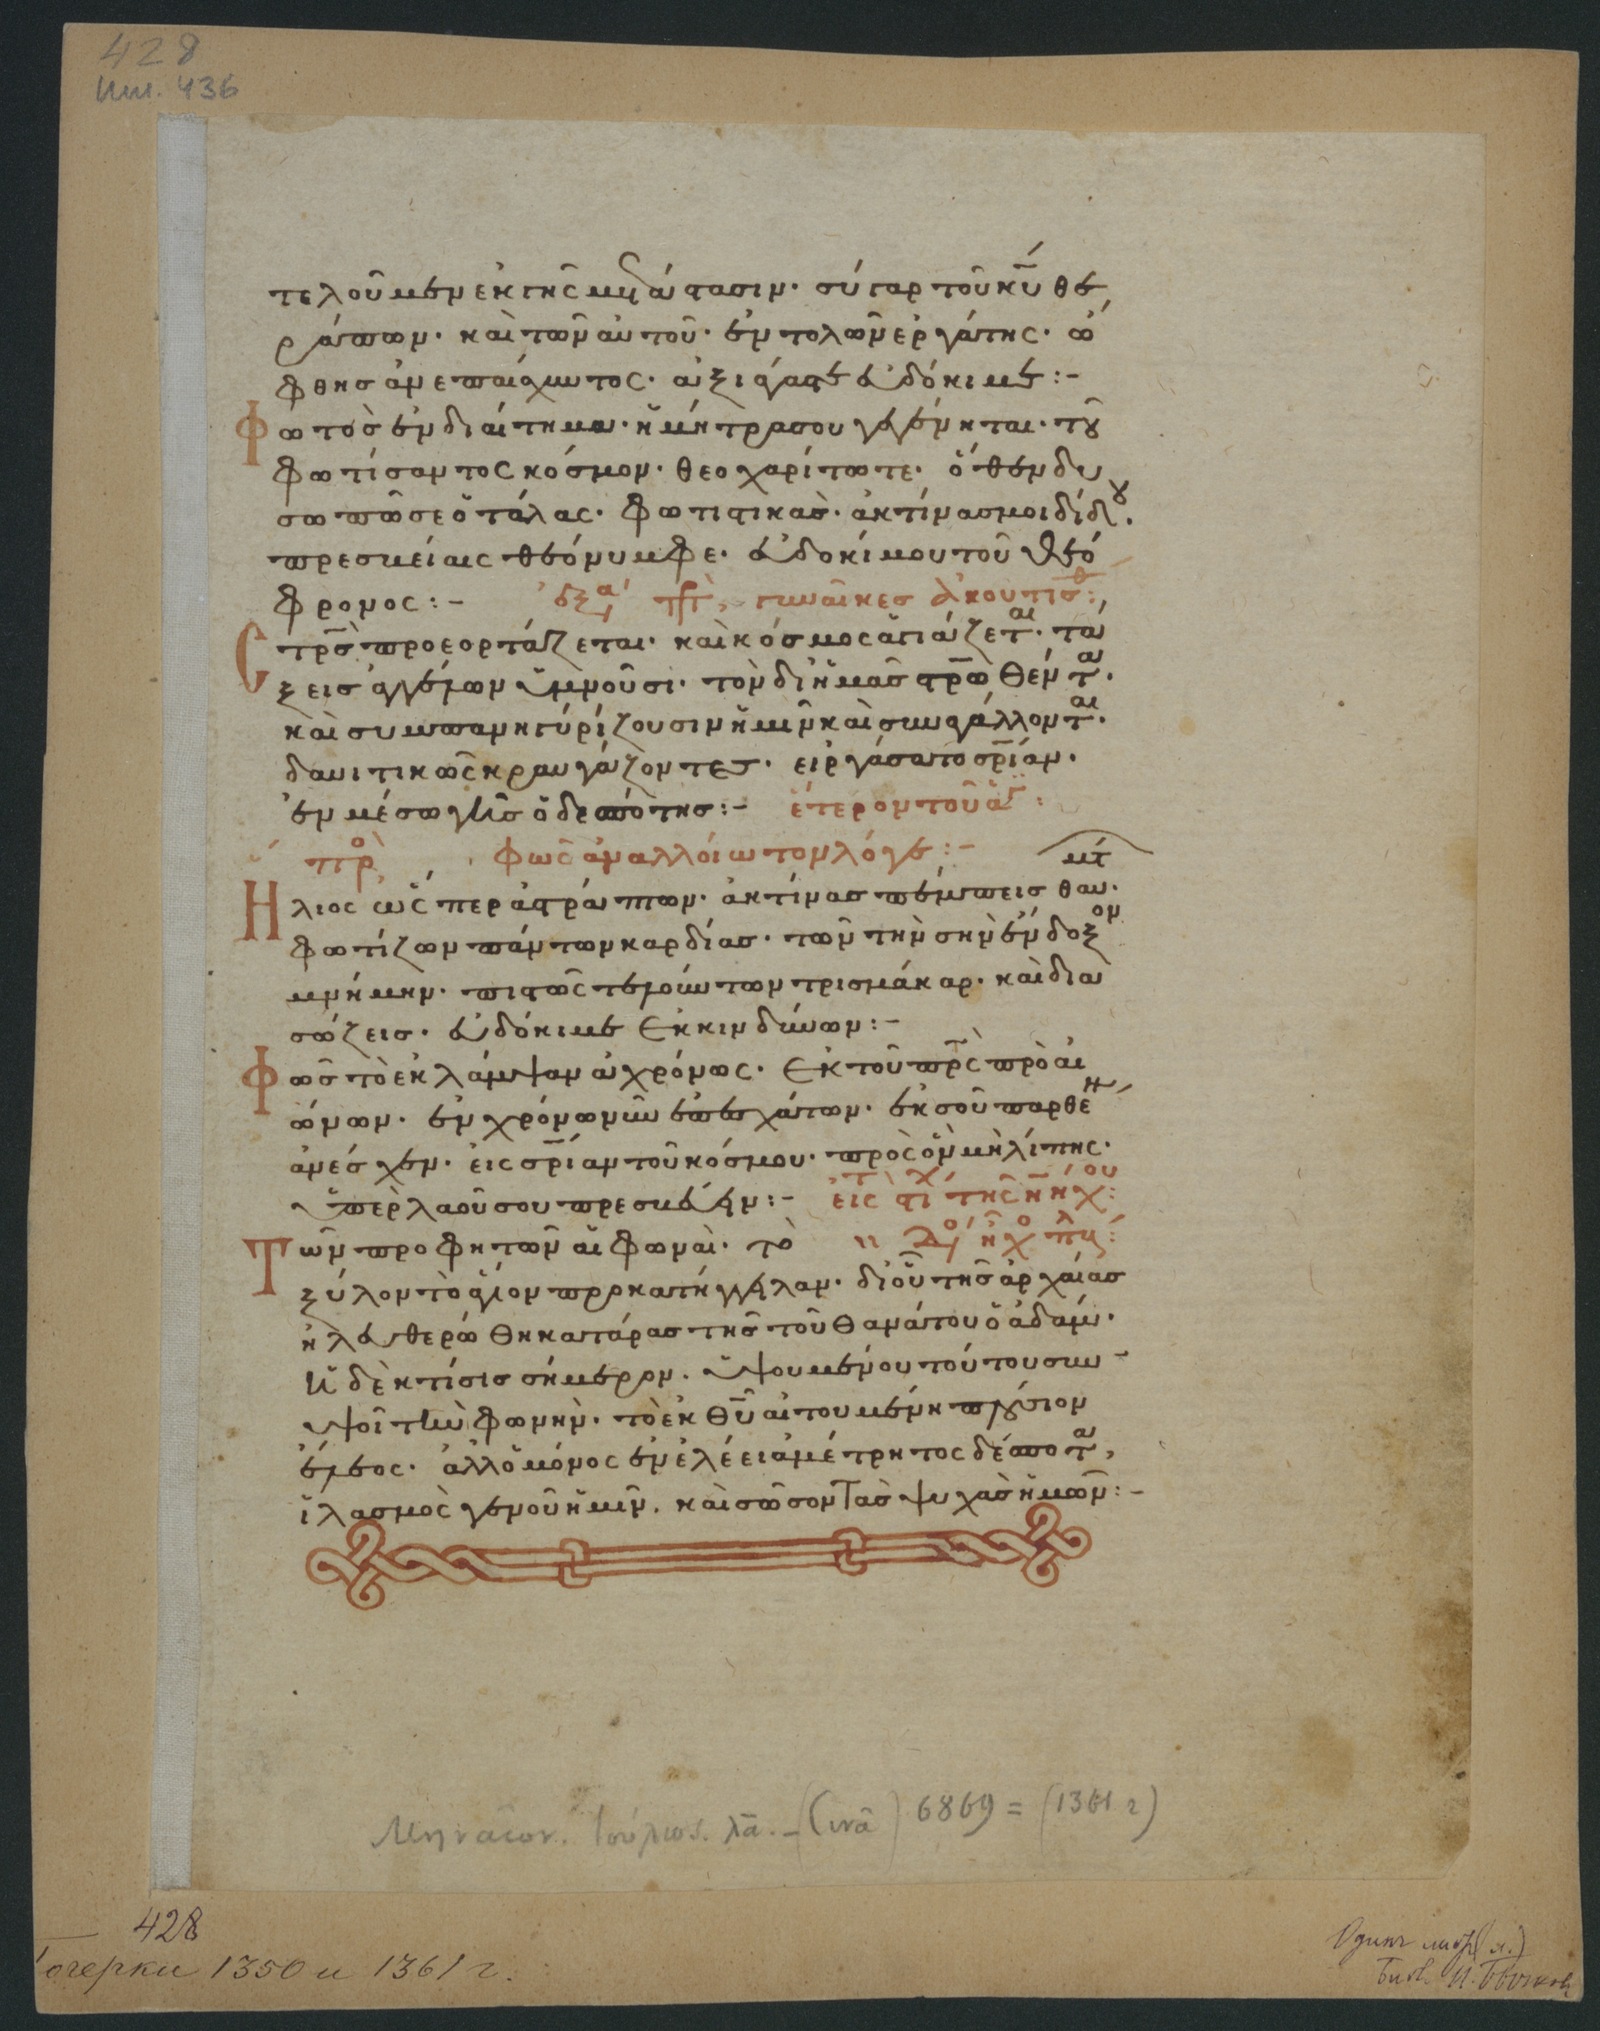 428
Ип. 436
τελοῦμεν ἐκ τῆς μετάστασιν· σὺ γὰρ τοῦ κῦ θε
ράπων· καὶ τῶν αὐτοῦ· ἐντολῶν ἐργάτης· ὤ
φθης ἀνεπαίσχυντος· ἀξιάγαστε εὐδόκιμε:-
Φωτὸς ἐνδιαίτημα· ἡ μήτρα σου γεγένηται· τοῦ
φωτίσαντος κόσμον· θεοχαρίτωτε· ὅθεν δυ
σωπῶ σε ὁ τάλας· φωτιστικὰς· ἀκτίνας μοι δίδου·
πρεσβείαις θεόνυμφε· εὐδοκίμου τοῦ θεό
φρονος:- γυναῖκες ἀκουτίσθ:
Στρς̄ προεορτάζεται· καὶ κόσμος ἁγιάζεται· τά
ξεις ἀγγέλων ὑμνοῦσι· τὸν δι' ἡμᾶς στρωθέντα·
καὶ συμπανηγυρίζουσιν ἡμῖν καὶ συμψάλλονται·
δαυιτικῶς κραυγάζοντες· εἰργάσατο σρίαν·
ἐν μέσω γῆς ὁ δεσπότης:- ἕτερον τοῦ ἁγ:
φῶς ἀναλλοίωτον λόγε:-
Ἥλιος ὥς περ ἀστράπτων· ἀκτίνας πέμπεις θαυμτ·
φωτίζων πάντων καρδίας· τῶν τὴν σὴν ἔνδοξον
μνήμην· πιστῶς τελούντων τρισμάκαρ· καὶ δια
σώζεις· εὐδόκιμε ἐκ κινδύνων:-
Φῶς τὸ ἐκλάμψαν ἀχρόνως· ἐκ τοῦ πρς̄ πρὸ αἰ
ώνων· ἐν χρόνω νῦν ἐπ' ἐσχάτων· ἐκ σοῦ παρθένε
ἀνέσχεν· εἰς σρίαν τοῦ κόσμου· πρὸς ὃν μὴ λίπης·
ὑπὲρ λαοῦ σου πρεσβεύειν:- εἰς
Τῶν προφητῶν αἱ φωναὶ· τὸ
ξύλον τὸ ἅγιον προκατήγγειλαν· δι' οὗ τῆς ἀρχαίας
ἠλευθερώθη κατάρας τῆς τοῦ θανάτου ὁ ἀδάμ·
ἡ δὲ κτίσις σήμερον· ὑψουμένου τούτου συν
υψοῖ τὴν φωνὴν· τὸ ἐκ θῦ αἰτουμένη πλούσιον
ἔλεος· ἀλλ' ὁ μόνος ἐν ἐλέει ἀμέτρητος δέσποτα,
ἱλασμὸς γενοῦ ἡμῖν· καὶ σῶσον τὰς ψυχὰς ἡμῶν:-
Μηναῖον. Ἰούλιος. λᾱ. - (ινδ) 6869 = (1361 г)
428
Почерки 1350 и 1361 г.
Одинъ листъ (л.)
Библ. И. Бычковъ